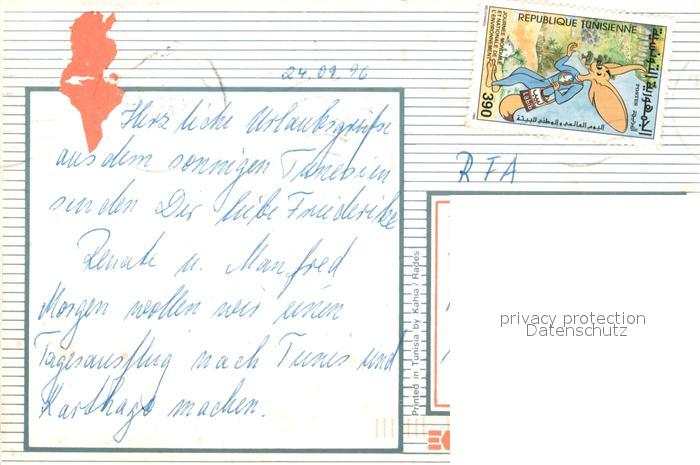 REPUBLIQUE TUNISIENNE
JOURNEE MONDIALE
ET NATIONALE DE
L'ENVIRONNEMENT
390
الجمهورية التونسية
POSTES البريد
اليوم العالمي والوطني للبيئة
24.09.96
Herzliche Urlaubsgrüße
aus dem sonnigen Tunesien
senden Dir liebe Friederike
Renate u. Manfred
Morgen wollen wir einen
Tagesausflug nach Tunis und
Karthago machen.
RFA
Printed in Tunisia by Kahia / Rades
privacy protection
Datenschutz